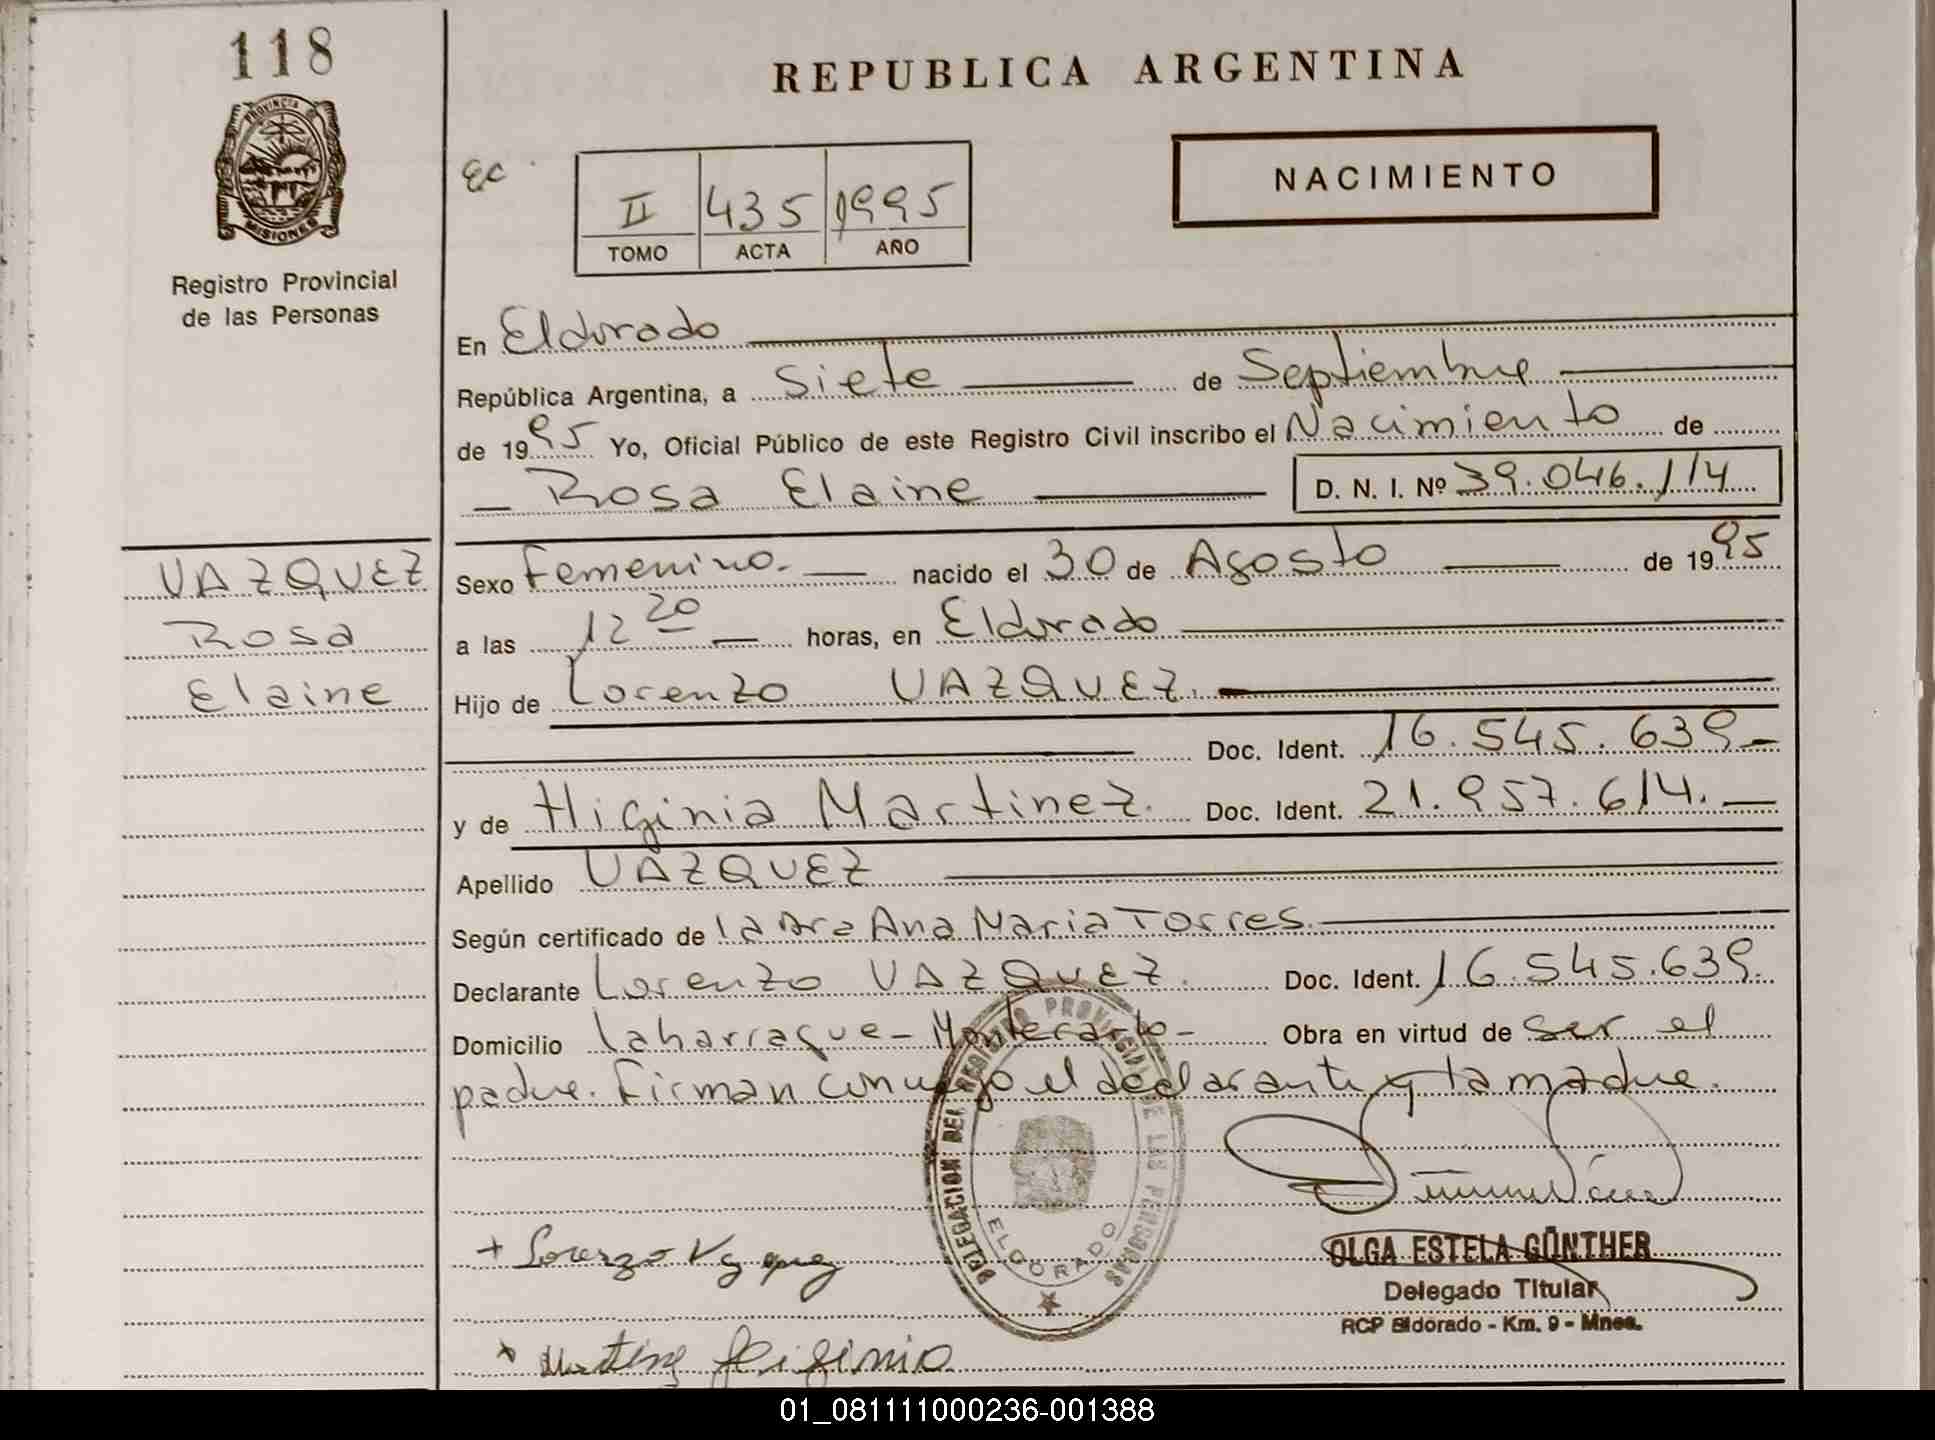 118
PROVINCIA
MISIONES
Registro Provincial
de las Personas
VAZQUEZ
Rosa
Elaine
REPUBLICA ARGENTINA
EC
II 435 1995
TOMO ACTA AÑO
NACIMIENTO
En Eldorado
República Argentina, a Siete de Septiembre
de 1995 Yo, Oficial Público de este Registro Civil inscribo el Nacimiento de
Rosa Elaine D. N. I. Nº 39.046.114
Sexo Femenino. nacido el 30 de Agosto de 1995
a las 12 20 horas, en Eldorado
Hijo de Lorenzo VAZQUEZ.
Doc. Ident. 16.545.639
y de Higinia Martinez. Doc. Ident. 21.957.614.
Apellido VAZQUEZ
Según certificado de la Dra Ana Maria Torres.
Declarante Lorenzo VAZQUEZ. Doc. Ident. 16.545.639.
Domicilio Laharrague - Montecarlo - Obra en virtud de ser el
padre. Firman conmigo el declarante y la madre.
DELEGACION DEL REGISTRO PROVINCIAL DE LAS PERSONAS
ELDORADO
+ Lorenzo Vazquez
OLGA ESTELA GÜNTHER
Delegado Titular
RCP Eldorado - Km. 9 - Mnes.
x Martinez Higinia
01_081111000236-001388